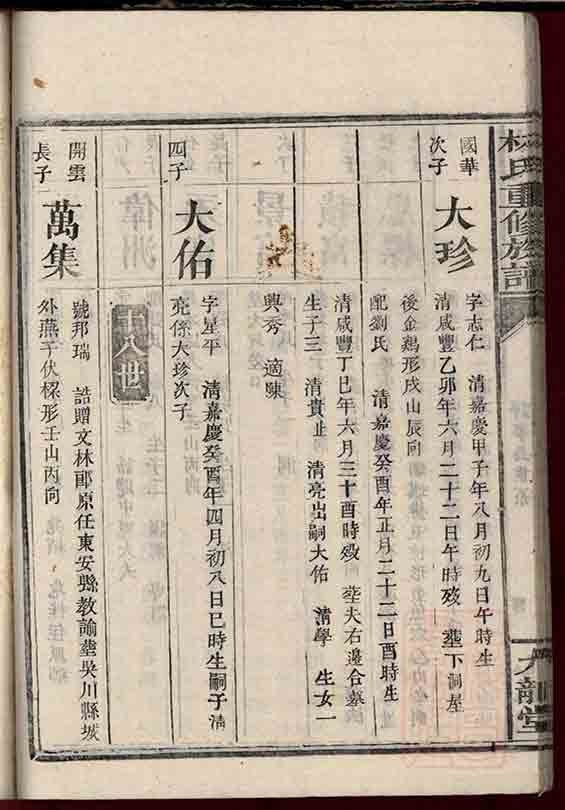 林氏重修族譜
九龍堂
國華
次子
大珍
字志仁 清嘉慶甲子年八月初九日午時生
清咸豐乙卯年六月二十二日午時殁 塟下洞屋
後金鷄形戌山辰向
配劉氏 清嘉慶癸酉年正月二十二日酉時生
清咸豐丁巳年六月三十酉時殁 塟夫右邊合墓
生子三 清貴止 清亮出嗣大佑 清學 生女一
興秀 適陳
四子
大佑
字星平 清嘉慶癸酉年四月初八日巳時生嗣子清
亮係大珍次子
十八世
開雲
長子
萬集
號邦瑞 誥贈文林郎原任東安縣教諭塟吳川縣城
外燕子伏樑形壬山丙向